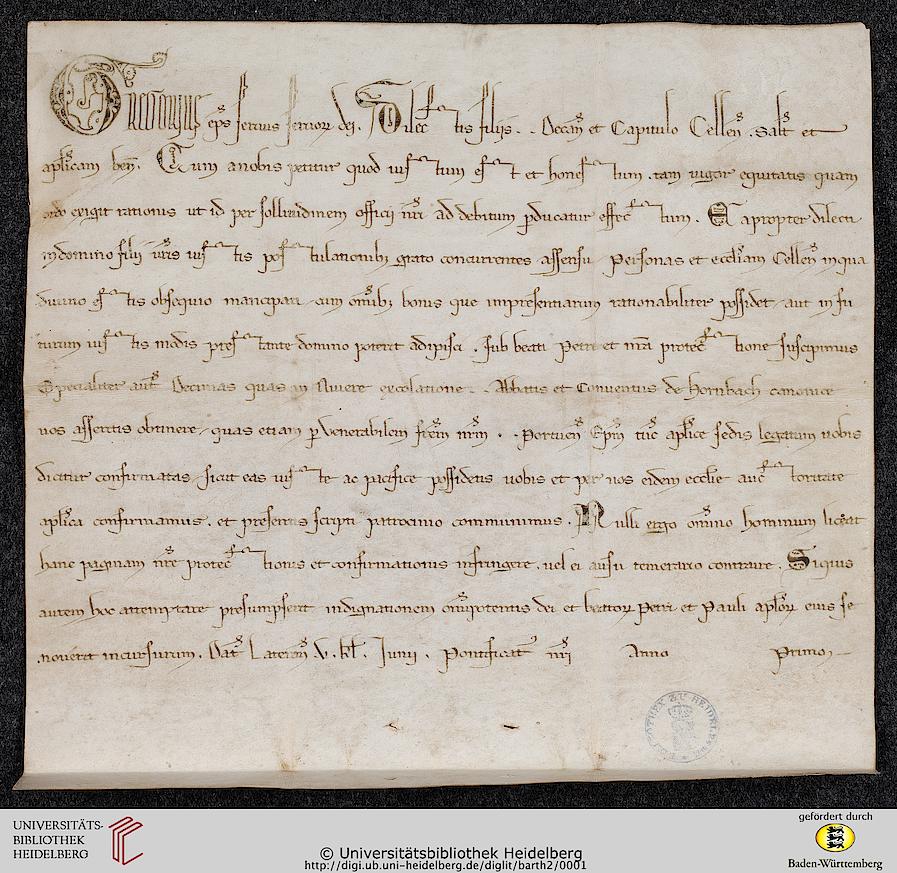 Gregorius ep̄s seruus seruoꝝ dei. Dilectis filiis .. Decano et Capitulo Cellen̄. salt̄ et
aplīcam ben̄. Cum a nobis petitur quod iustum est et honestum. tam uigor equitatis quam
ordo exigit rationis ut id per sollicitudinem officij nr̄i ad debitum ꝑducatur effectum. Ea propter dilecti
in domino filij ur̄is iustis postulationibꝫ grato concurrentes assensu personas et eccl̄iam Cellen̄ in qua
diuino estis obsequio mancipati. cum om̄ibꝫ bonis que inpresentiarum rationabiliter possidet. aut in fu
turum iustis modis prestante domino poterit adipisci. sub beati Petri et nr̄a protectione suscipimus
Specialiter aut̄ Decimas quas in excolatione .. Abbatis et Conuentus de Hornbach canonice
uos asseritis obtinere. quas etiam ꝑ venerabilem fr̄em nr̄m .. Portuen̄ Ep̄m tūc aplīce sedis legatum uobis
dicitur confirmatas. sicut eas iuste ac pacifice possidetis uobis et per uos eidem ecclie auctoritate
aplīca confirmamus. et presentis scripti patrocinio communimus. Nulli ergo om̄ino hominum liceat
hanc paginam nr̄e protectionis et confirmationis infringere. uel ei ausu temerario contraire. Siquis
autem hoc attemptare presumpserit indignationem om̄ipotentis dei et beatoꝝ Petri et Pauli apl̄oꝝ eius se
nouerit incursurum. Dat̄ Lateran̄ .v. kl̄. Junij. Pontificat̄ nr̄i Anno Primo.
UNIVERSITÄTS-
BIBLIOTHEK
HEIDELBERG
© Universitätsbibliothek Heidelberg
http://digi.ub.uni-heidelberg.de/diglit/barth2/0001
gefördert durch
Baden-Württemberg